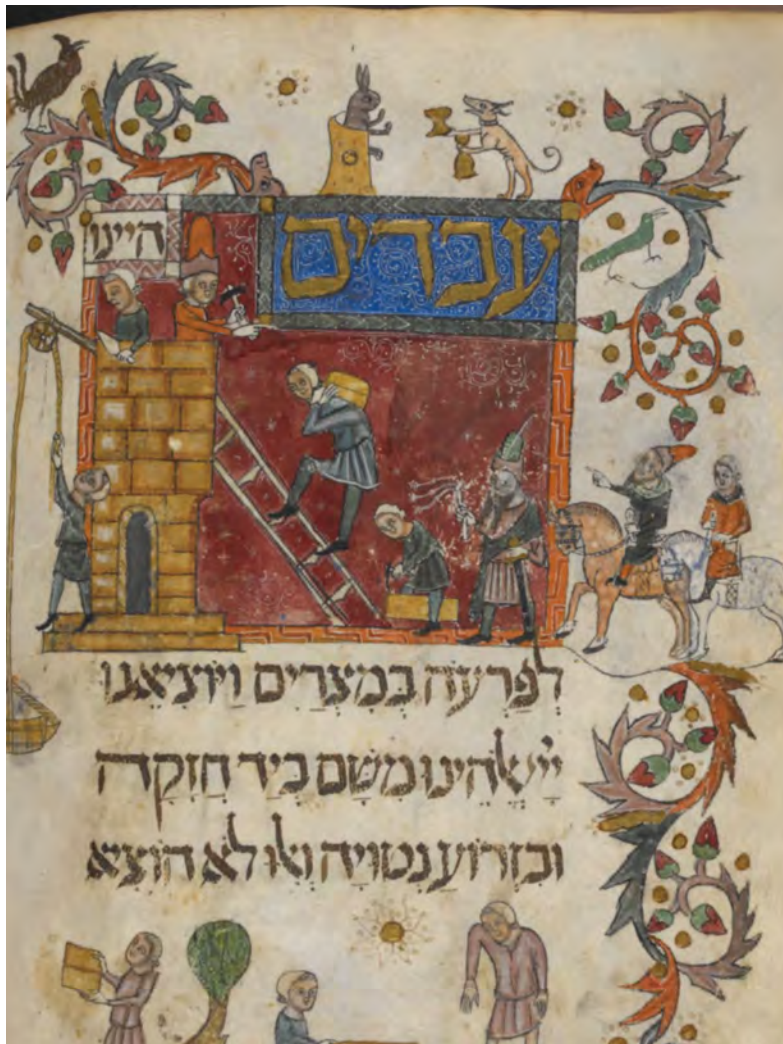 עבדים
היינו
לְפַרְעֹה בְּמִצְרַיִם וַיּוֹצִיאֵנוּ
יְיָ אֱלֹהֵינוּ מִשָּׁם בְּיָד חֲזָקָה
וּבִזְרוֹעַ נְטוּיָה וְאִלּוּ לֹא הוֹצִיא